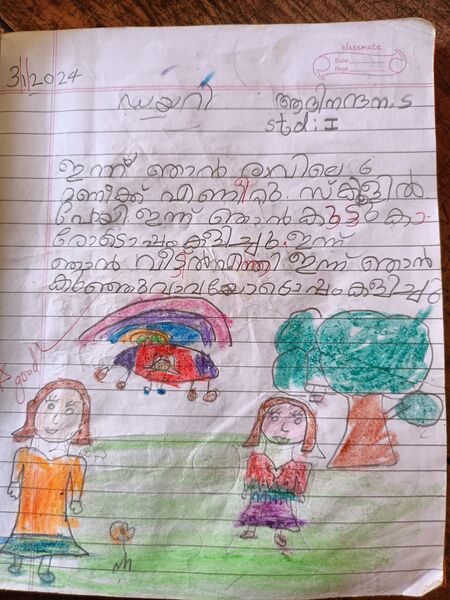 classmate
Date
Page
3/1/2024
ഡയറി
ആദിനന്ദന.S
std:I
ഇന്ന് ഞാൻ രാവിലെ 6
മണിക്ക് എണീറ്റു. സ്കൂളിൽ
പോയി. ഇന്ന് ഞാൻ കൂട്ടുകാ
രോടൊപ്പം കളിച്ചു. ഇന്ന്
ഞാൻ വീട്ടിൽഎത്തി ഇന്ന് ഞാൻ
കുഞ്ഞുവാവയോടൊപ്പം കളിച്ചു
good